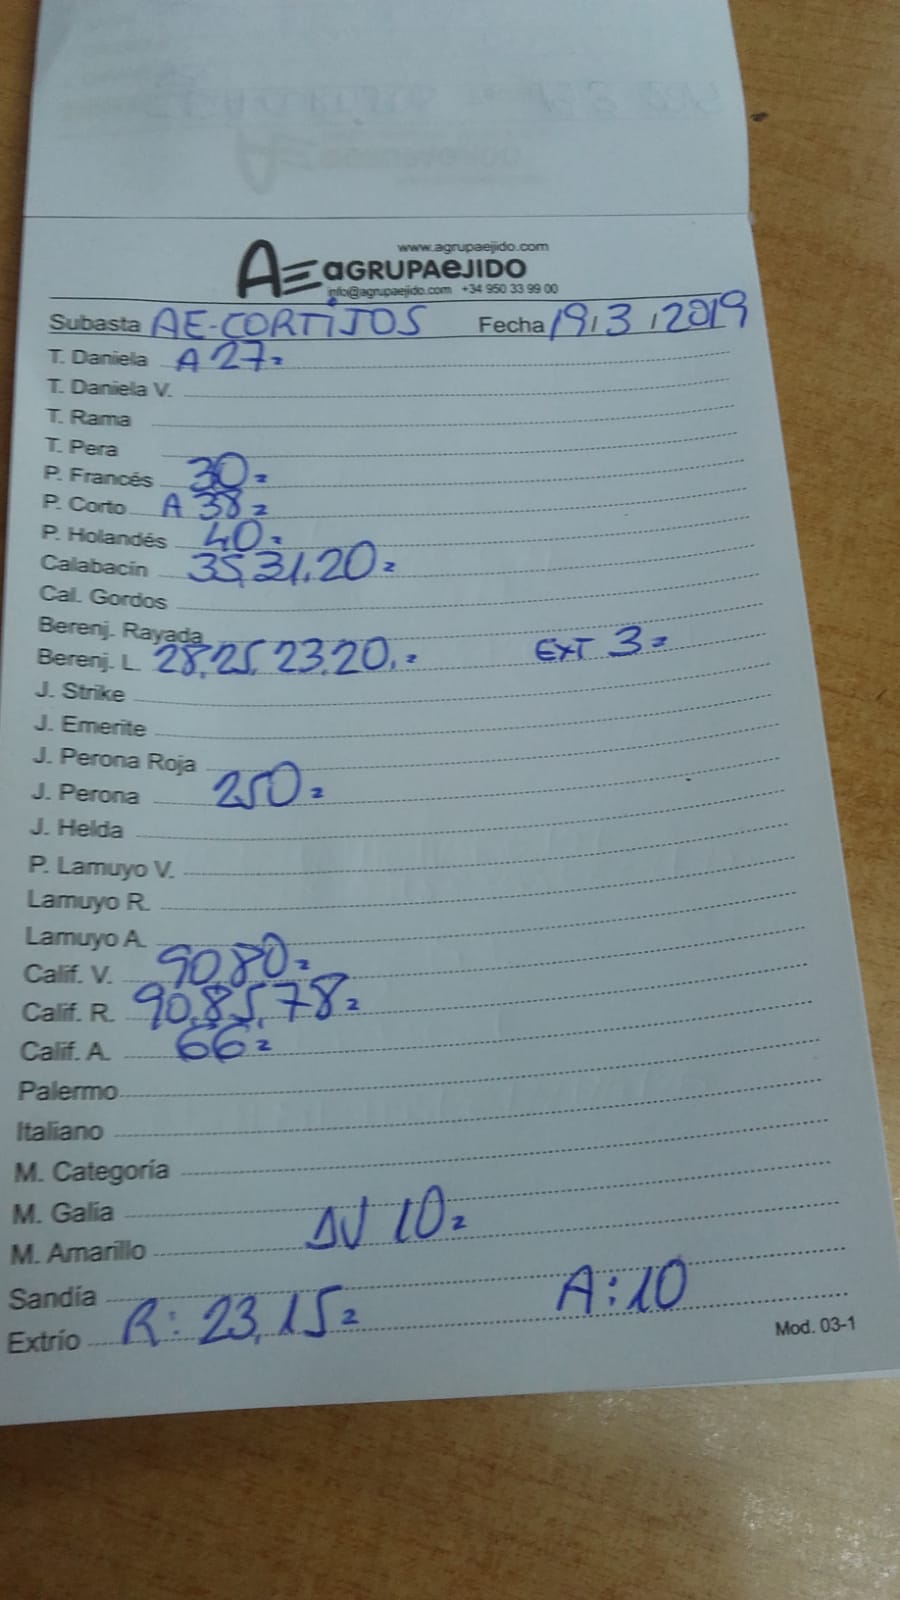 www.agrupaejido.com
AE aGRUPAeJIDO
info@agrupaejido.com +34 950 33 99 00
Subasta AE-CORTIJOS Fecha 19/3/2019
T. Daniela A 27=
T. Daniela V.
T. Rama
T. Pera
P. Francés 30=
P. Corto A 38=
P. Holandés 40=
Calabacín 35,31,20=
Cal. Gordos
Berenj. Rayada
Berenj. L. 28,25,23,20,= EXT 3=
J. Strike
J. Emerite
J. Perona Roja
J. Perona 250=
J. Helda
P. Lamuyo V.
Lamuyo R.
Lamuyo A.
Calif. V. 90,80=
Calif. R. 90,85,78=
Calif. A. 66=
Palermo
Italiano
M. Categoría
M. Galia
M. Amarillo ΔV 10=
Sandía
Extrío R: 23,15= A:10
Mod. 03-1